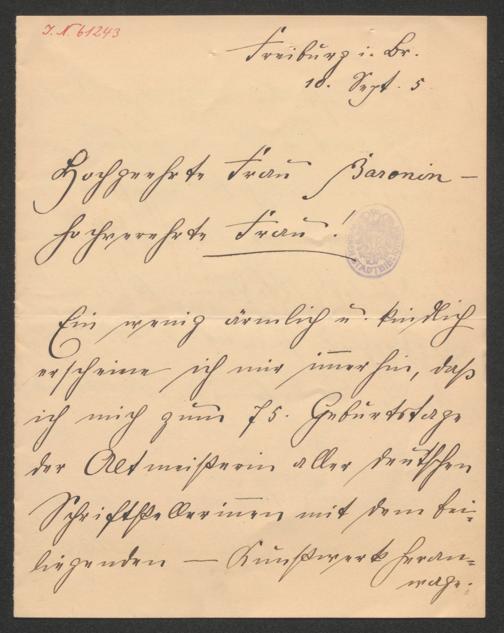 J. N. 61243
Freiburg i. Br.
10. Sept. 5
Hochgeehrte Frau Baronin –
hochverehrte Frau!
STADTBIBL
Ein wenig ärmlich u. kindlich
erscheine ich mir immerhin, daß
ich mich zum 75. Geburtstage
der Altmeisterin aller deutschen
Schriftstellerinnen mit dem bei-
liegenden — Kunstwerk heran-
wage.